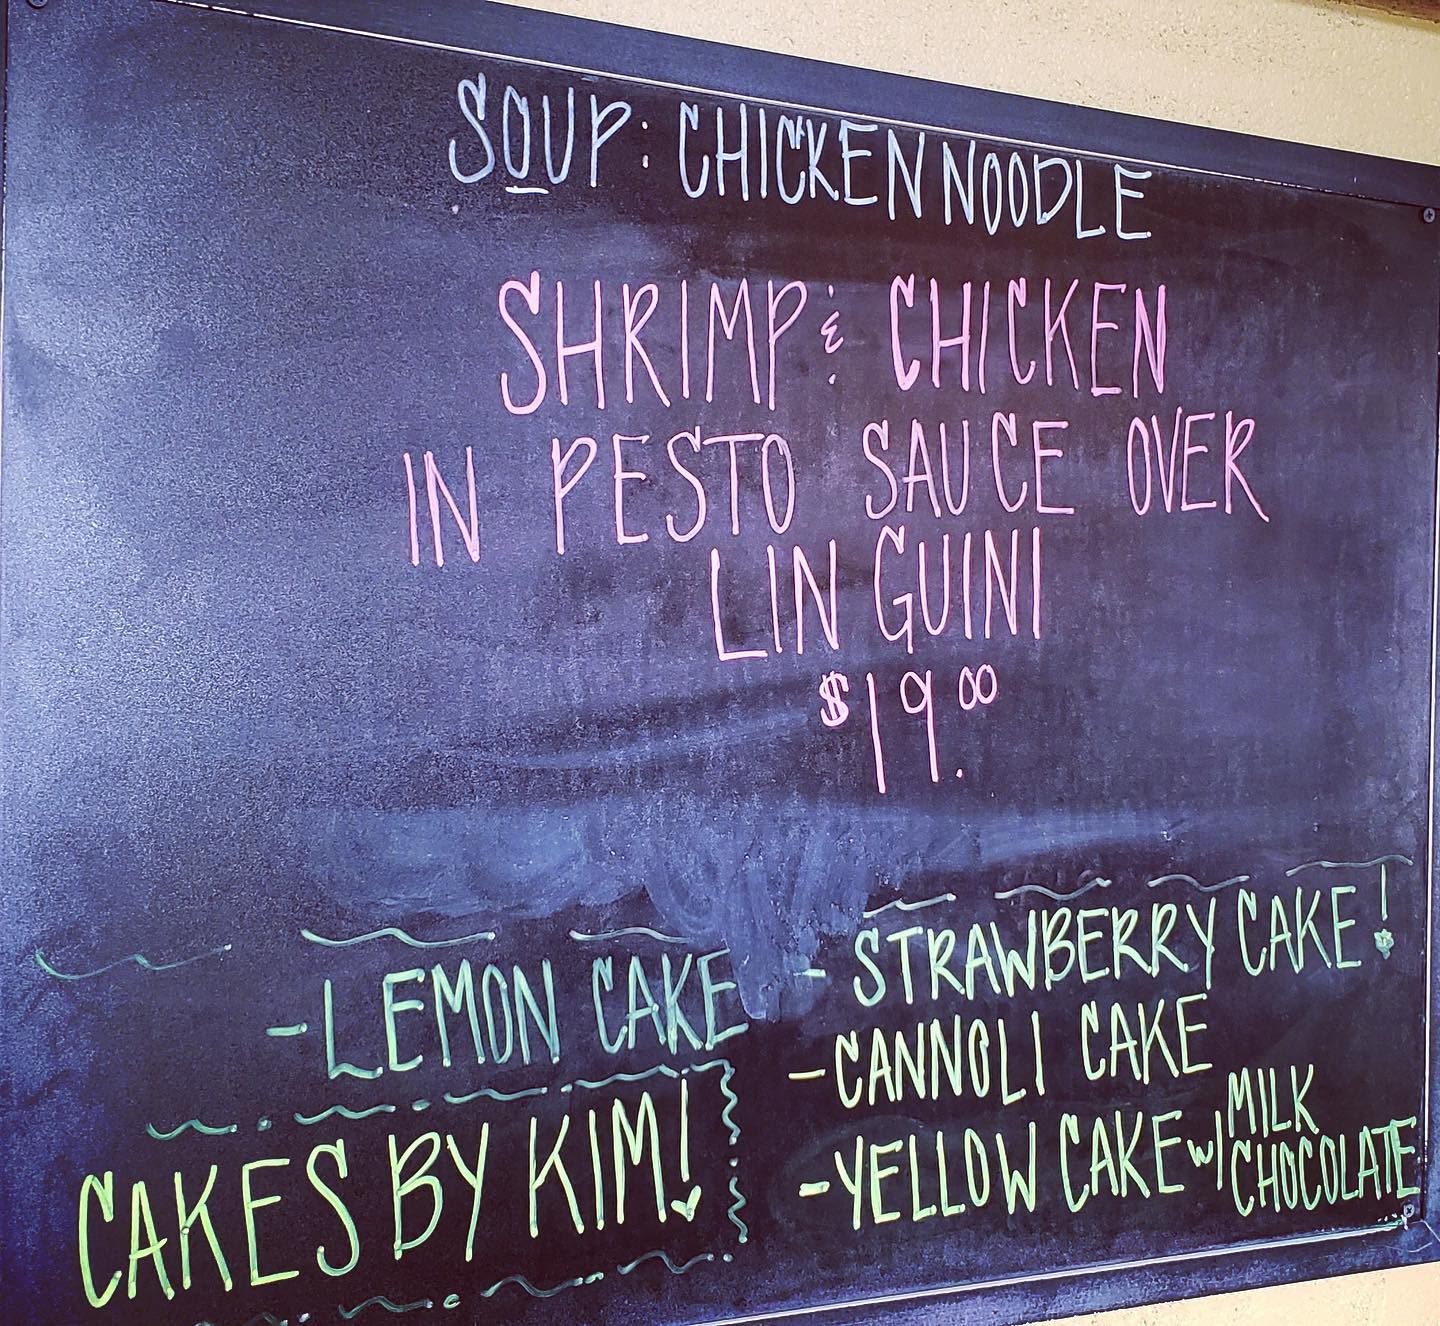 SOUP: CHICKEN NOODLE
SHRIMP & CHICKEN
IN PESTO SAUCE OVER
LINGUINI
$19.00
- LEMON CAKE
CAKES BY KIM!
- STRAWBERRY CAKE!
- CANNOLI CAKE
- YELLOW CAKE w/ MILK
CHOCOLATE